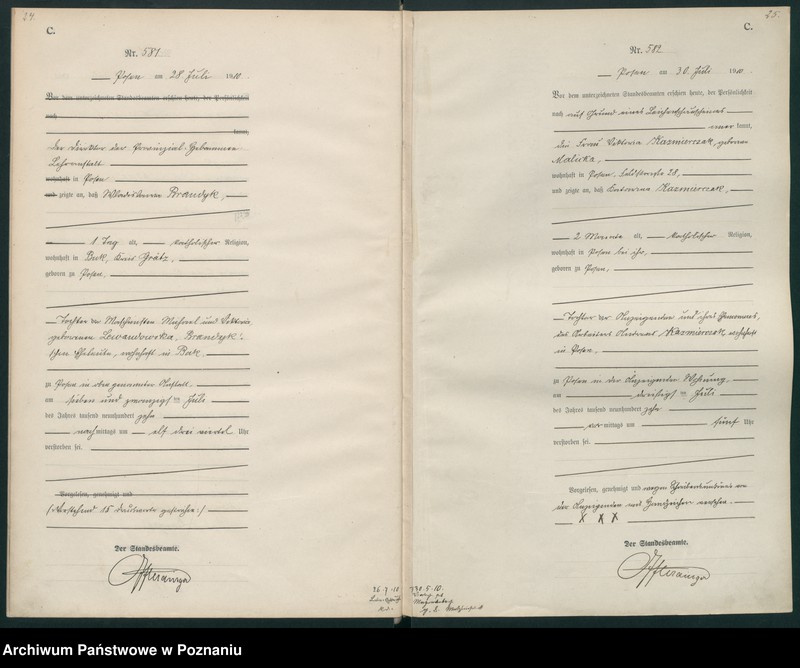 24.
C.
Nr. 581
Posen am 28 Juli 1910.
Vor dem unterzeichneten Standesbeamten erschien heute, der Persönlichkeit
nach
kannt,
der Direktor der Provinzial-Hebammen
Lehranstalt
wohnhaft in Posen
und zeigte an, daß Wladislawa Brandyk,
1 Tag alt, katholischer Religion,
wohnhaft in Buk, Kreis Grätz,
geboren zu Posen,
Tochter der Michael und Viktoria
geborenen Lewandowska, Brandyk
schen Eheleute, wohnhaft in Buk
zu Posen in der genannten Anstalt
am sieben und zwanzigsten Juli
des Jahres tausend neunhundert zehn
nachmittags um elf drei viertel Uhr
verstorben sei.
Vorgelesen, genehmigt und
(Vorstehend 15 Druckworte gestrichen:)
Der Standesbeamte.
26.7.10
25.
C.
Nr. 582
Posen am 30. Juli 1910.
Vor dem unterzeichneten Standesbeamten erschien heute, der Persönlichkeit
nach auf Grund eines
kannt,
die Frau Viktoria Kazmierczak, geborene
Malicka,
wohnhaft in Posen, 28,
und zeigte an, daß Kazmierczak,
2 Monate alt, katholischer Religion,
wohnhaft in Posen bei ihr,
geboren zu Posen,
Tochter der Anzeigenden und ihres Ehemannes,
des Arbeiters Andreas Kazmierczak wohnhaft
in Posen,
zu Posen in der Anzeigenden Wohnung,
am dreißigsten Juli
des Jahres tausend neunhundert zehn
vormittags um fünf Uhr
verstorben sei.
Vorgelesen, genehmigt und wegen Schreibensunkunde von
der Anzeigenden mit Handzeichen versehen.
X X X
Der Standesbeamte.
30.5.10
Archiwum Państwowe w Poznaniu